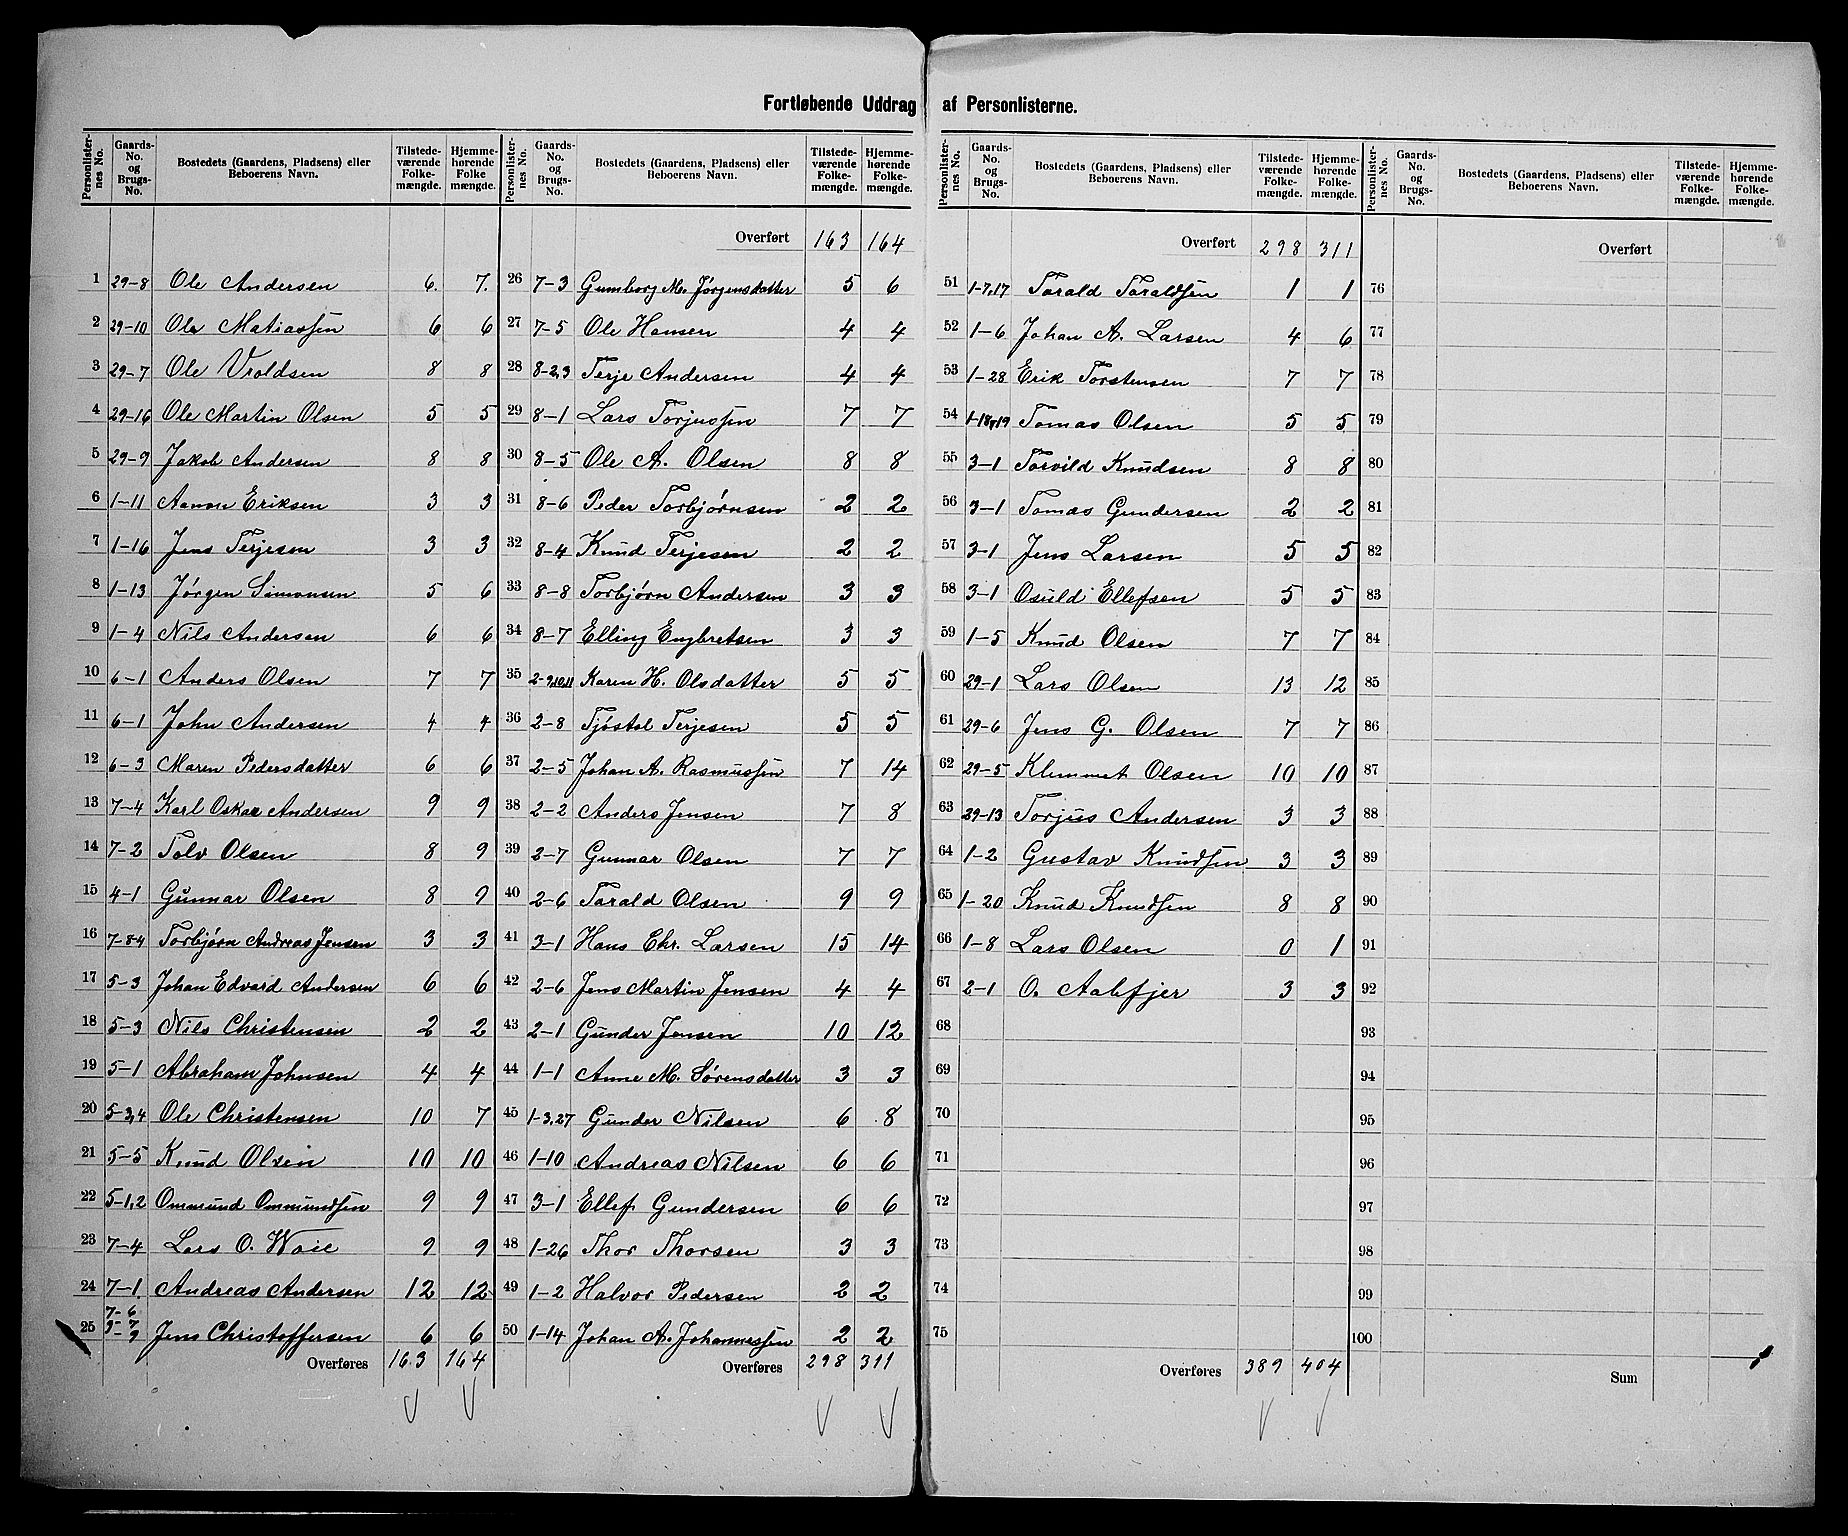 Fortløbende Uddrag af Personlisterne.
Personlister-nes No. | Gaards-No. og Brugs-No. | Bostedets (Gaardens, Pladsens) eller Beboerens Navn. | Tilstede-værende Folke-mængde. | Hjemme-hørende Folke mængde.
1 29-8 Ole Andersen 6. 7.
2 29-10 Ole Matiassen 6 6
3 29-7 Ole Vroldsen 8 8
4 29-16 Ole Martin Olsen 5 5
5 29-9 Jakob Andersen 8 8
6 1-11 Aanon Eriksen 3 3
7 1-16 Jens Terjesen 3 3
8 1-13 Jørgen Simonsen 5 6
9 1-4 Nils Andersen 6 6
10 6-1 Anders Olsen 7 7
11 6-1 John Andersen 4 4
12 6-3 Maren Pedersdatter 6 6
13 7-4 Karl Oskar Andersen 9 9
14 7-2 Tolv Olsen 8 9
15 4-1 Gunnar Olsen 8 9
16 7-8-4 Torbjørn Andreas Jensen 3 3
17 5-3 Johan Edvard Andersen 6 6
18 5-3 Nils Christensen 2 2
19 5-1 Abraham Johnsen 4 4
20 5-3,4 Ole Christensen 10 7
21 5-5 Knud Olsen 10 10
22 5-1,2 Ommund Ommundsen 9 9
23 7-4 Lars O. Waie 9 9
24 7-1. Andreas Andersen 12 12
7-6
25 Jens Christoffersen 6 6
Overføres 163 164
Personlister-nes No. | Gaards-No. og Brugs-No. | Bostedets (Gaardens, Pladsens) eller Beboerens Navn. | Tilstede-værende Folke-mængde. | Hjemme-hørende Folke-mængde.
Overført 163 164
26 7-3 Gumborg M. Jørgensdatter 5 6
27 7-5 Ole Hansen 4 4
28 8-2,3 Terje Andersen 4 4
29 8-1 Lars Torjussen 7 7
30 8-5 Ole A. Olsen 8 8
31 8-6 Peder Torbjørnsen 2 2
32 8-4 Knud Terjesen 2 2
33 8-8 Torbjørn Andersen 3 3
34 8-7 Elling Engbretsen 3 3
35 2-9,10,11 Karen H. Olsdatter 5 5
36 2-8 Tjöstol Terjesen 5 5
37 2-5 Johan A. Rasmussen 7 14
38 2-2 Anders Jensen 7 8
39 2-7 Gunnar Olsen 7 7
40 2-6 Tarald Olsen 9 9
41 3-1 Hans Chr. Larsen 15 14
42 2-6 Jens Martin Jensen 4 4
43 2-1 Gunder Jensen 10 12
44 1-1 Anne M. Sørensdatter 3 3
45 1-3,27 Gunder Nilsen 6 8
46 1-10 Andreas Nilsen 6 6
47 3-1 Ellef Gundersen 6 6
48 1-26 Thor Thorsen 3 3
49 1-2 Halvor Pedersen 2 2
50 1-14 Johan A. Johannessen 2 2
Overføres 298 311
Personlister-nes No. | Gaards-No. og Brugs-No. | Bostedets (Gaardens, Pladsens) eller Beboerens Navn. | Tilstede-værende Folke-mængde. | Hjemme-hørende Folke-mængde.
Overført 298 311
51 1-7,17 Tarald Taraldsen 1 1
52 1-6 Johan A. Larsen 4 6
53 1-28 Erik Torstensen 7 7
54 1-18,19 Tomas Olsen 5 5
55 3-1 Torvild Knudsen 8 8
56 3-1 Tomas Gundersen 2 2
57 3-1 Jens Larsen 5 5
58 3-1 Osuld Ellefsen 5 5
59 1-5 Knud Olsen 7 7
60 29-1 Lars Olsen 13 12
61 29-6 Jens G. Olsen 7 7
62 29-5 Klemmet Olsen 10 10
63 29-13 Torjus Andersen 3 3
64 1-2 Gustav Knudsen 3 3
65 1-20 Knud Knudsen 8 8
66 1-8 Lars Olsen 0 1
67 2-1 O. Aabfjer 3 3
68
69
70
71
72
73
74
75
Overføres 389 404
Personlister-nes No. | Gaards-No. og Brugs-No. | Bostedets (Gaardens, Pladsens) eller Beboerens Navn. | Tilstede-værende Folke-mængde. | Hjemme-hørende Folke-mængde.
Overført
76
77
78
79
80
81
82
83
84
85
86
87
88
89
90
91
92
93
94
95
96
97
98
99
100
Sum